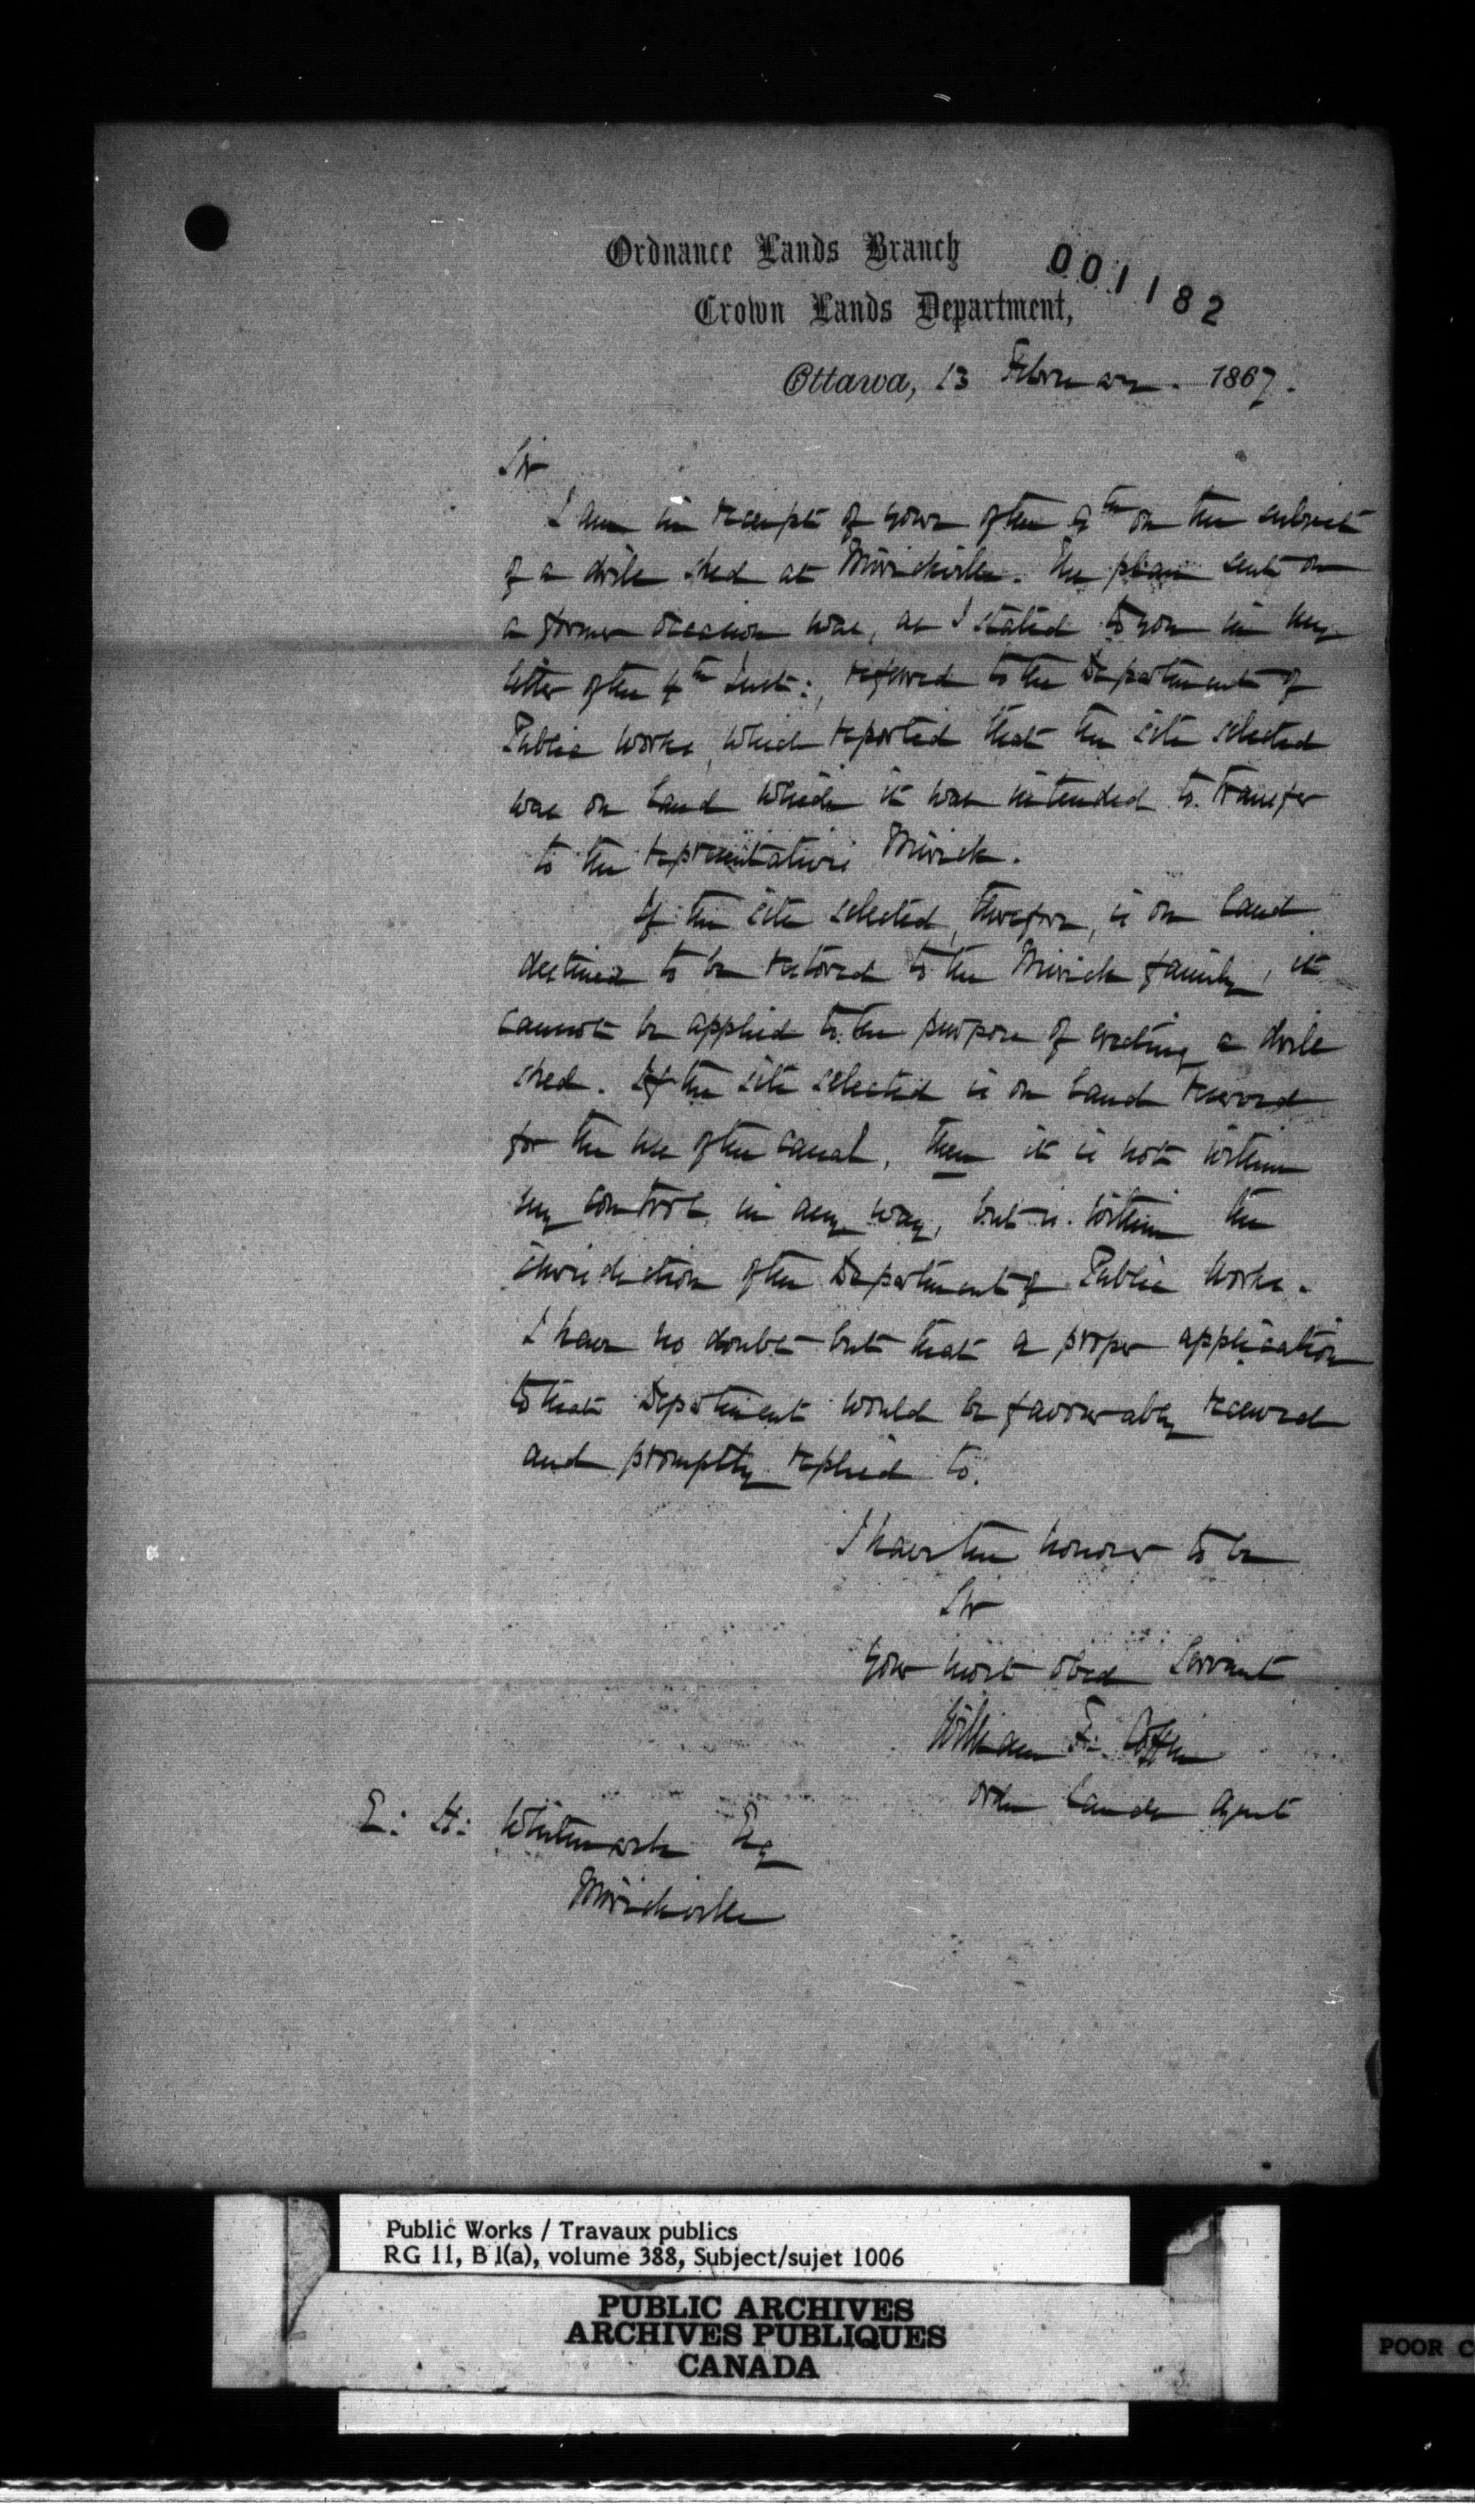 Ordnance Lands Branch
001182
Crown Lands Department,
Ottawa, 13 February. 1867.
Sir
I am in receipt of yours of the 9th on the subject
of a drill shed at Mirickville. The plan sent on
a former occasion was, as I stated to you in my
letter of the 4th Inst:, referred to the Department of
Public Works, which reported that the site selected
was on Land which it was intended to transfer
to the representatives Mirick.
If the site selected, therefore, is on Land
destined to be restored to the Mirick family, it
cannot be applied to the purpose of erecting a drill
shed. If the site selected is on Land reserved
for the use of the canal, then it is not within
my control in any way, but is within the
jurisdiction of the Department of Public Works.
I have no doubt but that a proper application
to that Department would be favourably received
and promptly replied to.
I have the honour to be
Sir
Your most obed Servant
William F. Coffin
Ordn Lands Agent
E: H: Whitmarsh Esq
Mirickville
Public Works / Travaux publics
RG 11, B 1(a), volume 388, Subject/sujet 1006
PUBLIC ARCHIVES
ARCHIVES PUBLIQUES
CANADA
POOR C